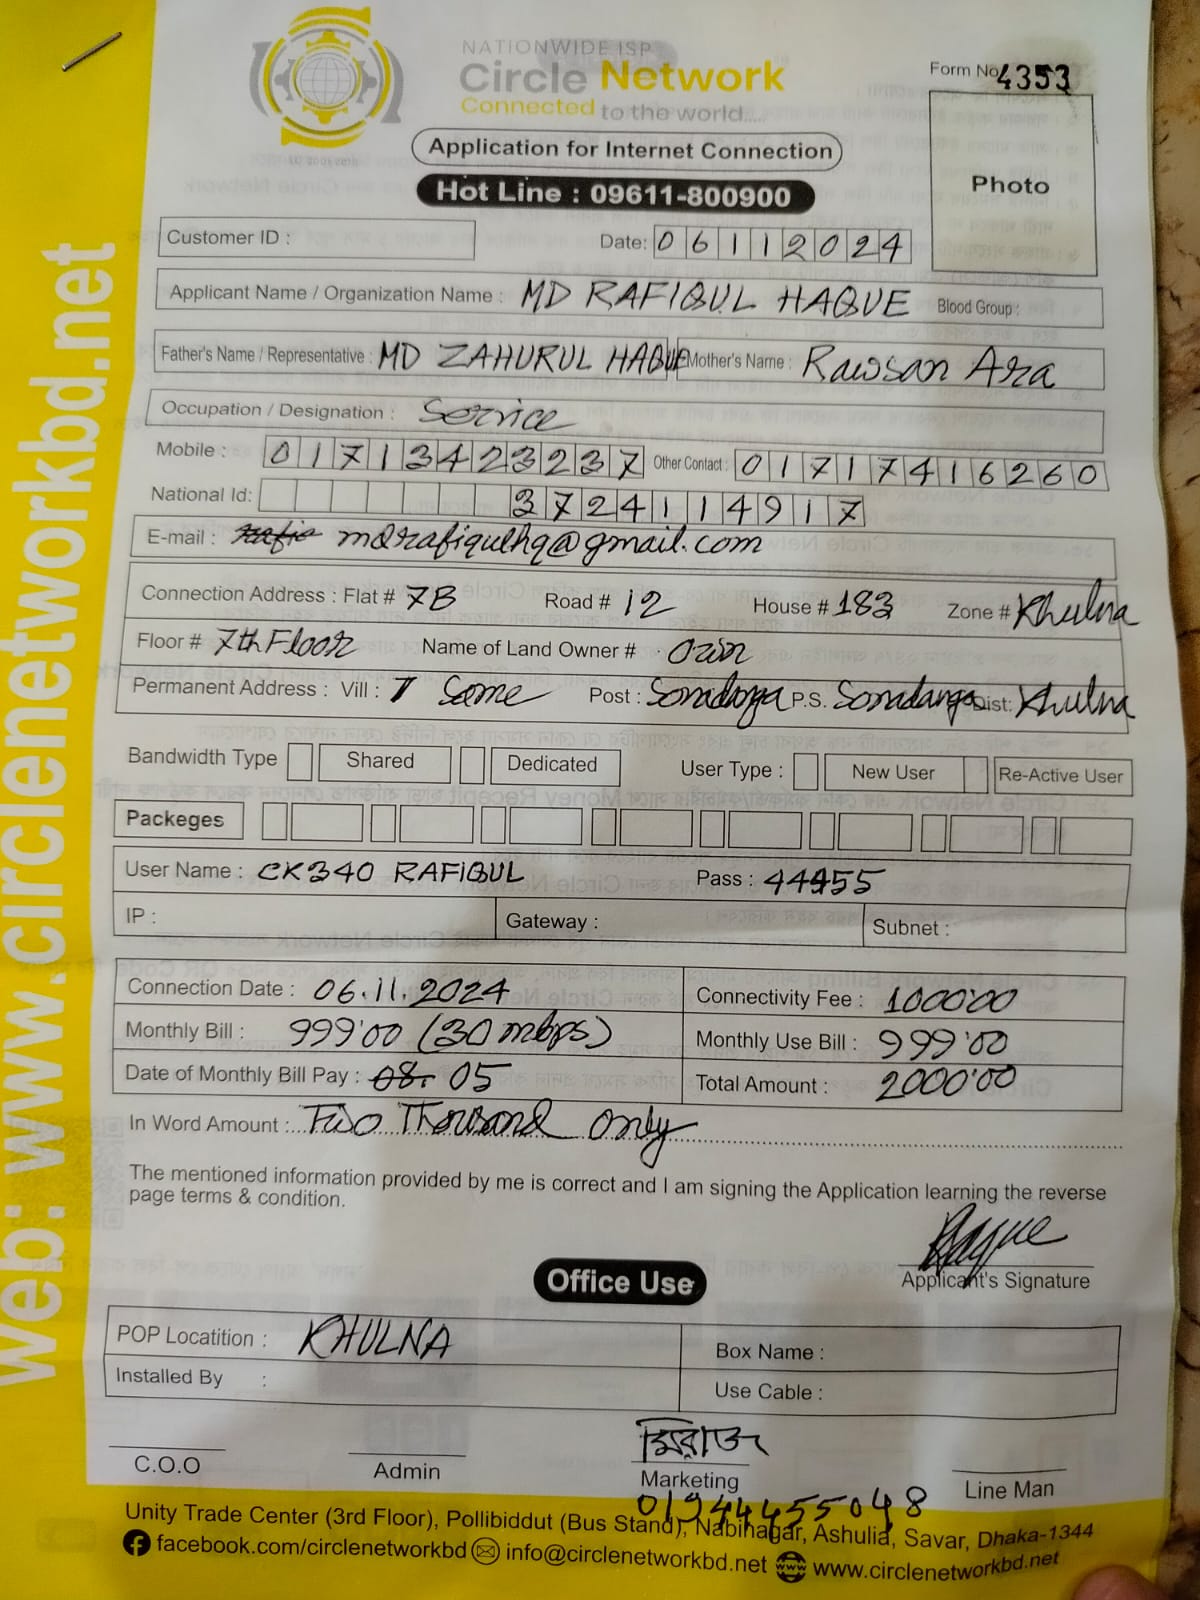 NATIONWIDE ISP
Circle Network
Connected to the world.....
Form No 4353
Application for Internet Connection
Photo
Hot Line : 09611-800900
Customer ID :
Date: 06112024
Applicant Name / Organization Name : MD RAFIQUL HAQUE Blood Group :
Father's Name / Representative : MD ZAHURUL HAQUE Mother's Name : Rawsan Ara
Occupation / Designation : Service
Mobile : 01713423237 Other Contact : 01717416260
National Id: 3724114917
E-mail : rafiq mdrafiqulhq@gmail.com
Connection Address : Flat # 7B Road # 12 House # 183 Zone # Khulna
Floor # 7th Floor Name of Land Owner #
Permanent Address : Vill : Same Post : Sonadanga P.S. Sonadanga Dist: Khulna
Bandwidth Type Shared Dedicated User Type : New User Re-Active User
Packeges
User Name : CK340 RAFIQUL Pass : 44455
IP : Gateway : Subnet :
Connection Date : 06.11.2024 Connectivity Fee : 1000'00
Monthly Bill : 999'00 (30 mbps) Monthly Use Bill : 999'00
Date of Monthly Bill Pay : 08. 05 Total Amount : 2000'00
In Word Amount : Two Thousand only
The mentioned information provided by me is correct and I am signing the Application learning the reverse
page terms & condition.
Haque
Applicant's Signature
Office Use
POP Locatition : KHULNA Box Name :
Installed By : Use Cable :
মিরাজ
C.O.O Admin Marketing Line Man
01944455048
Unity Trade Center (3rd Floor), Pollibiddut (Bus Stand), Nabinagar, Ashulia, Savar, Dhaka-1344
facebook.com/circlenetworkbd info@circlenetworkbd.net www.circlenetworkbd.net
web: www.circlenetworkbd.net